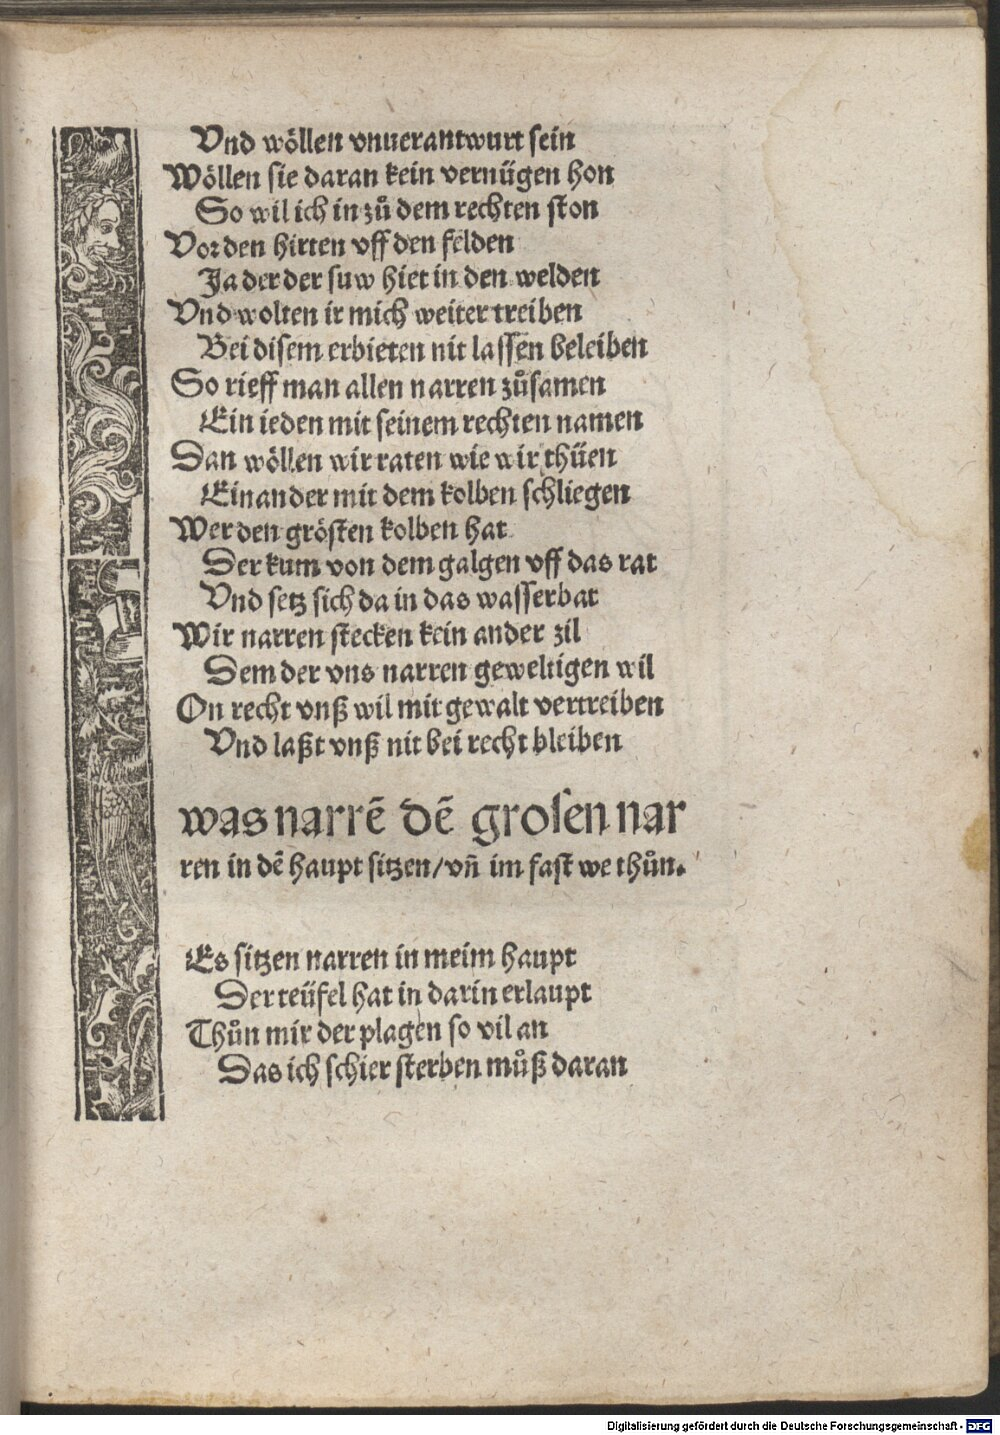 Vnd wöllen vnuerantwurt sein
Wöllen sie daran kein vernügen hon
So wil ich in zů dem rechten ston
Vor den hirten vff den felden
Ja der der suw hiet in den welden
Vnd wolten ir mich weiter treiben
Bei disem erbieten nit lassen beleiben
So rieff man allen narren zůsamen
Ein ieden mit seinem rechten namen
Dan wöllen wir raten wie wir thüen
Einander mit dem kolben schliegen
Wer den grösten kolben hat
Der kum von dem galgen vff das rat
Vnd setz sich da in das wasserbat
Wir narren stecken kein ander zil
Dem der vns narren geweltigen wil
On recht vnß wil mit gewalt vertreiben
Vnd laßt vnß nit bei recht bleiben
was narrē dē grosen nar
ren in dē haupt sitzen/vñ im fast we thůn.
Es sitzen narren in meim haupt
Der teüfel hat in darin erlaupt
Thůn mir der plagen so vil an
Das ich schier sterben můß daran
Digitalisierung gefördert durch die Deutsche Forschungsgemeinschaft - DFG